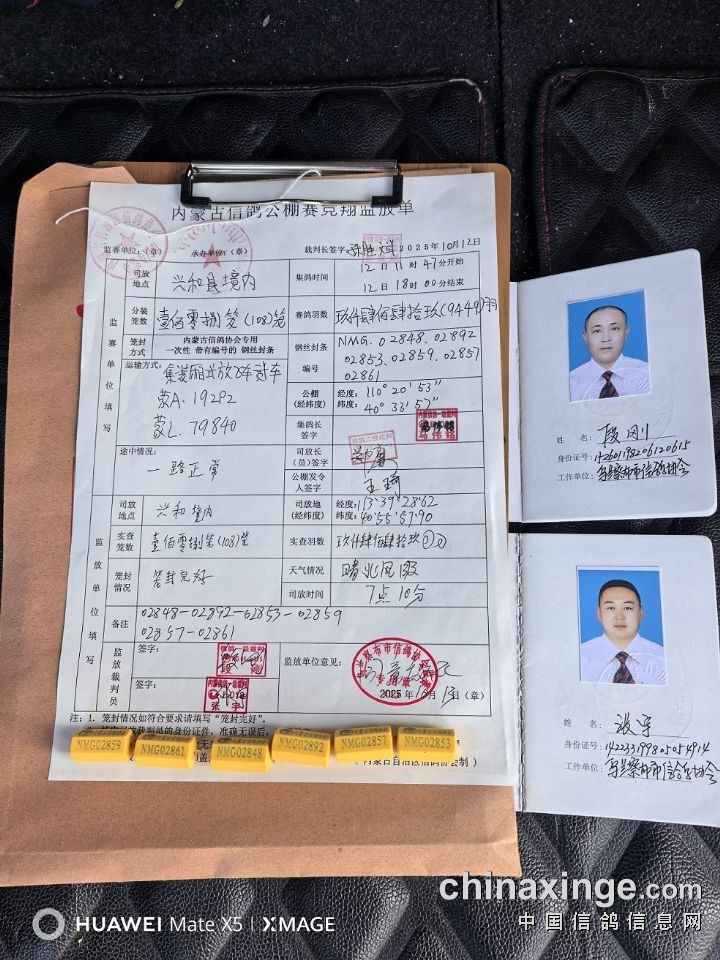 内蒙古信鸽公棚赛竞翔监放单
监赛单位:(章) 承办单位:(章) 裁判长签字: 2025年10月12日
监赛单位填写
司放地点 兴和县境内 集鸽时间 12日11时47分开始
12日18时00分结束
分装笼数 壹佰零捌笼(108)笼 赛鸽羽数 玖仟肆佰肆拾玖(9449)羽
笼封方式 内蒙古信鸽协会专用
一次性 带有编号的 钢丝封条
钢丝封条编号 NMG.02848.02892
02853.02859.02857
02861
运输方式:
蒙A.19292
蒙L.79840
公棚(经纬度) 经度:110°20′53″
纬度:40°33′57″
集鸽长签字
途中情况: 一路正常
司放长(员)签字
公棚发令人签字
监放单位填写
司放地点 兴和境内 司放地(经纬度) 经度:113°39′28″62
纬度:40°55′57″90
实查笼数 壹佰零捌笼(108)笼 实查羽数 玖仟肆佰肆拾玖
笼封情况 笼封完好 天气情况 晴北风
司放时间 7点10分
备注 02848-02892-02853-02859
02857-02861
监放裁判员
签字:
签字:
张宇
监放单位意见:
专用章
2025年10月13日(章)
注:1、笼封情况如符合要求请填写“笼封完好”。
NMG02859 NMG02861 NMG02848 NMG02892 NMG02857 NMG02853
姓名:段刚
身份证号:
工作单位:乌兰察布市信鸽协会
姓名:
身份证号:
工作单位:乌兰察布市信鸽协会
chinaxinge.com
中国信鸽信息网
HUAWEI Mate X5 | XMAGE